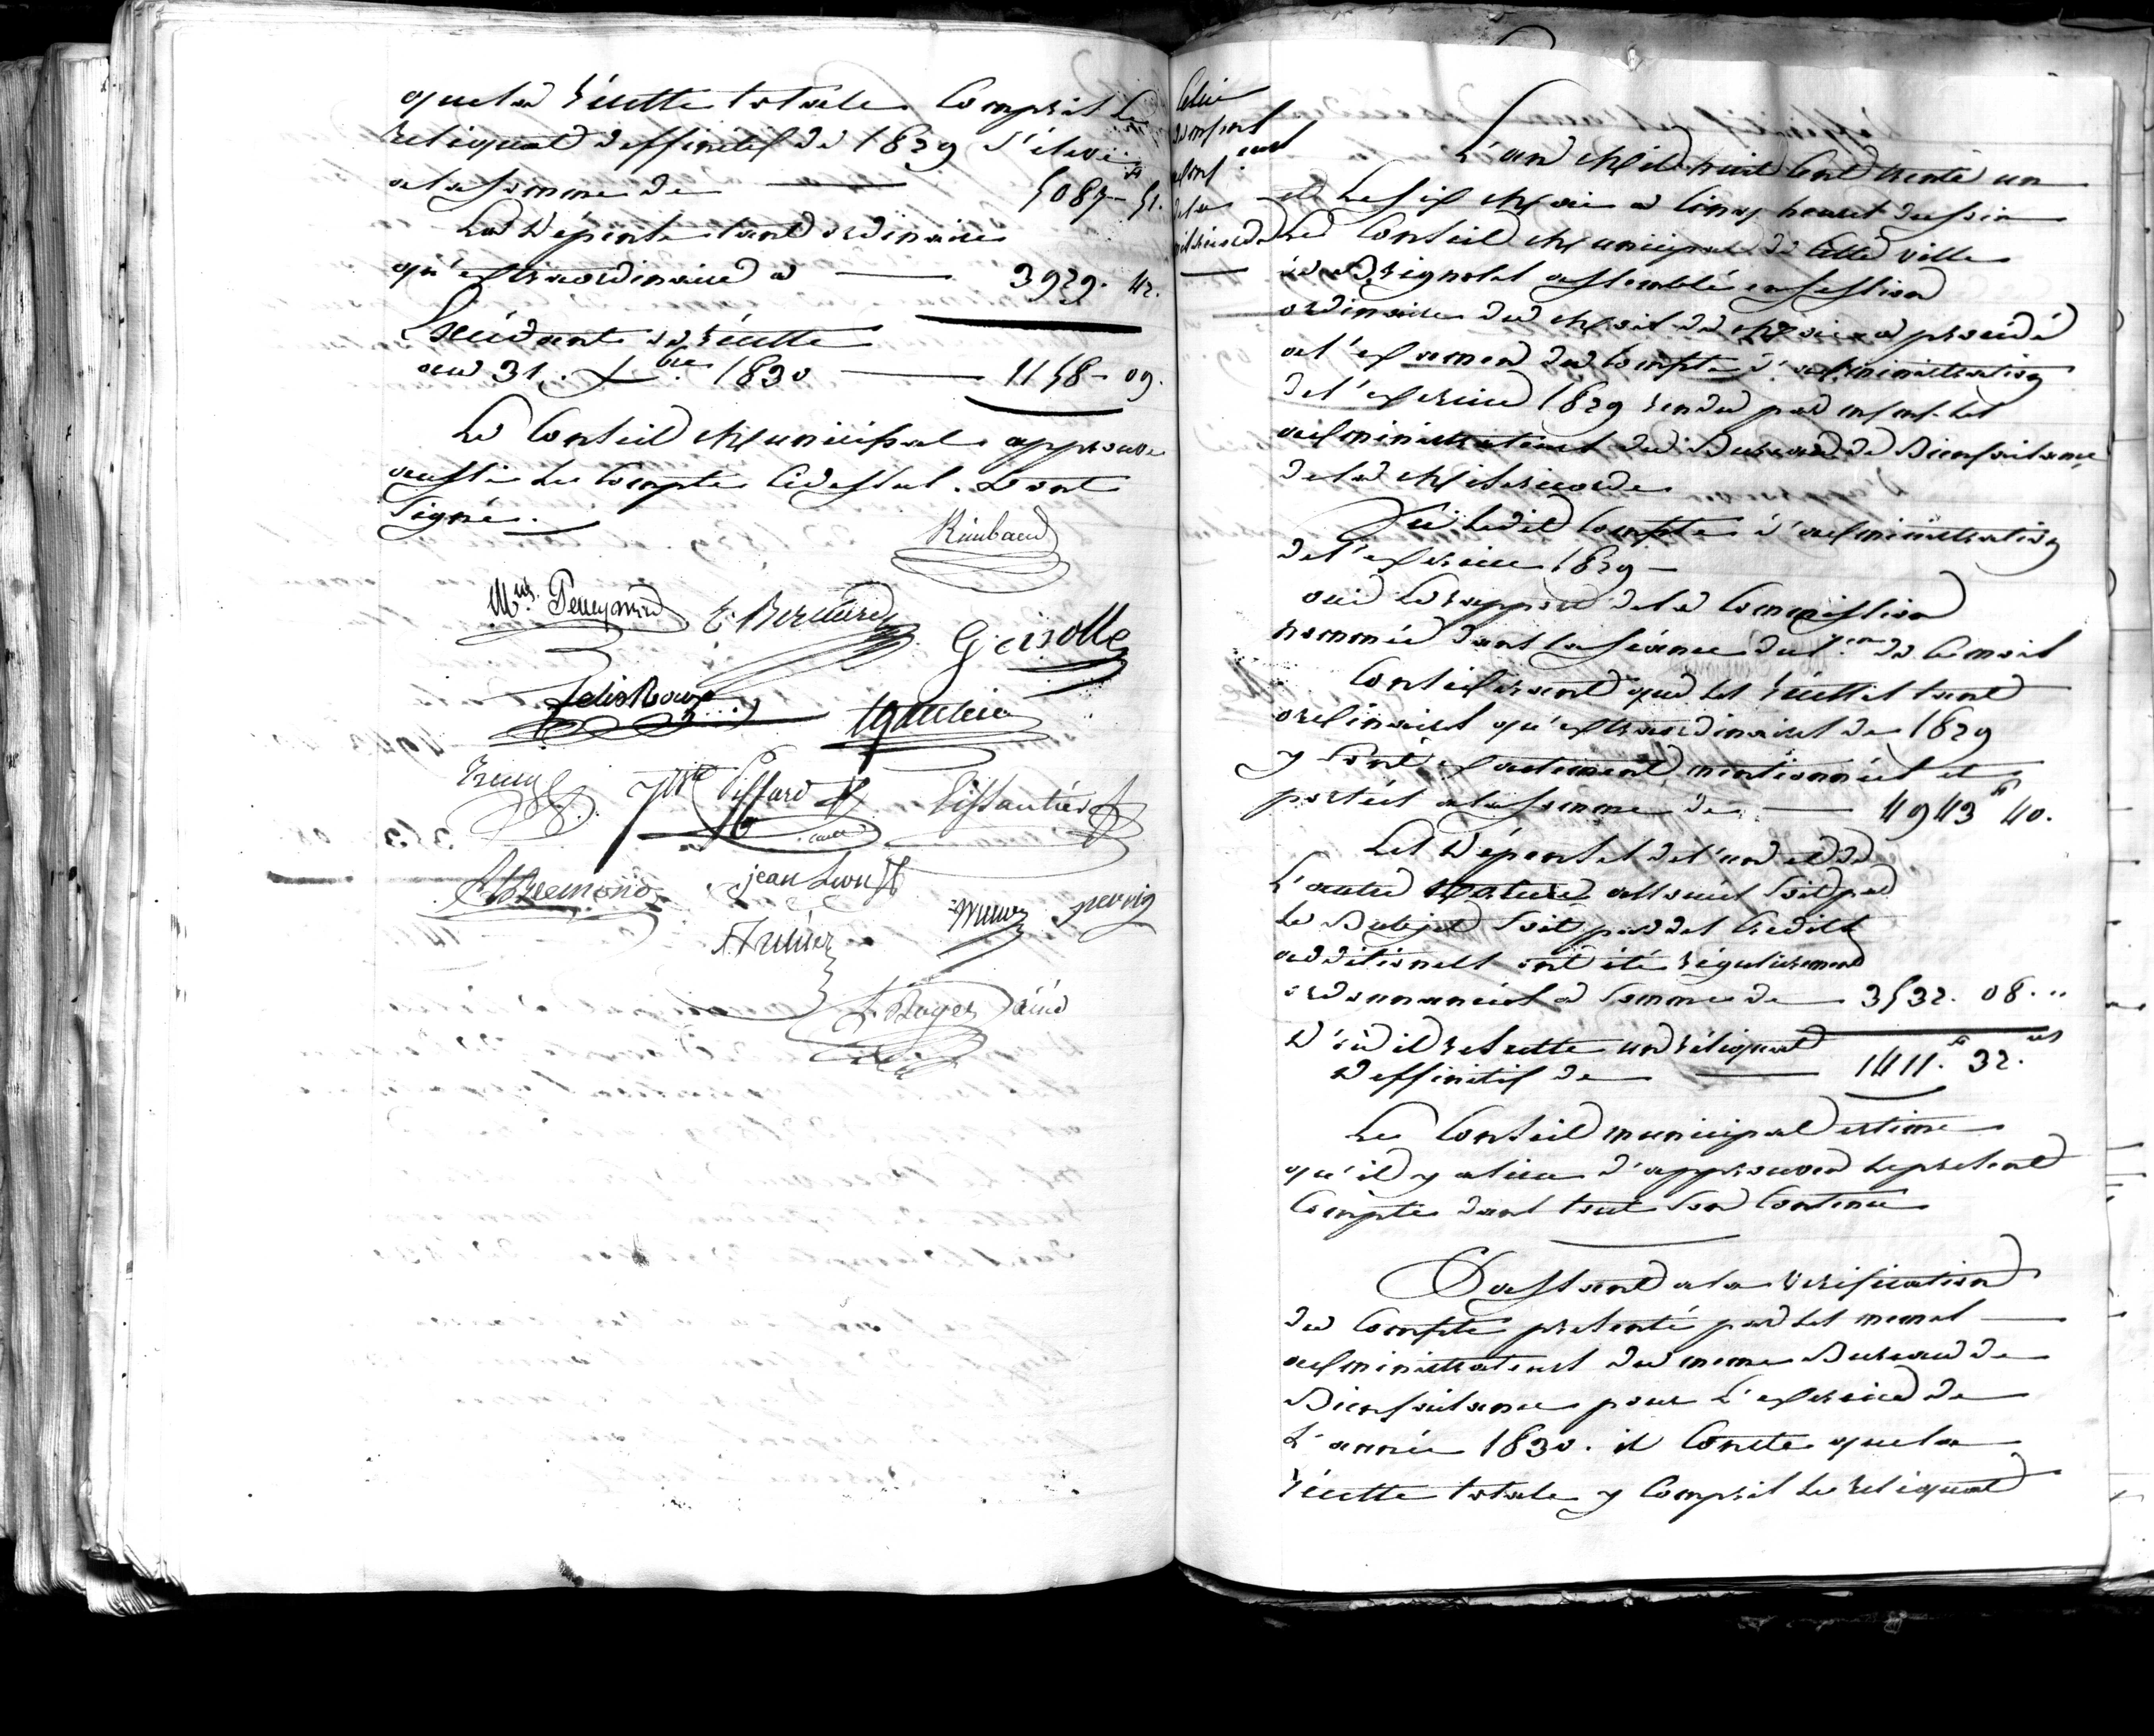 que la récette totale compris le
reliquat deffinitif de 1829 s'éleve
a la somme de — 5087 - 51.
La dépense tant ordinaire
qu'extraordinaire a — 3929. 42.
Excédant de récette
au 31. Xbre 1830 — 1158 - 09.
Le Conseil Municipal approuve
aussi le Compte cidessus. Et ont
signé.
Rimbaud
E. Bernard
Grisolle
felix Roux
jean Louis
A. Bremond
Roger ainé
L'an Mil huit Cent trente un
et le six Mai a cinq heures du soir
Le Conseil Municipal de cette ville
de Brignoles assemblé en session
ordinaire du Mois de Mai a procédé
a l'examen du Compte d'administration
de l'exercice 1829 rendu par
administrateurs du Bureau de Bienfaisance
de la Misericorde
Vu ledit Compte d'administration
de l'exercice 1829 —
oui le rapport de la Commission
nommée dans la séance du 1er de ce mois
Considerant que les récettes tant
ordinaires qu'extraordinaires de 1829
y sont exactement mentionnées et
portées a la somme de — 4943 f 40.
Les dépenses de l'une et de
L'autre Nature allouées soit par
le Budget soit par des Credits
additionels ont été régulierement
ordonnancées a somme de — 3532. 08. "
D'où il résulte un réliquat
deffinitif de — 1411. f 32. cs
Le Conseil municipal estime
qu'il y a lieu d'approuver le present
Compte dans tout son Contenu
Passant a la vérification
du Compte presenté par les memes —
administrateurs du meme Bureau de
Bienfaisance pour L'exercice de
L'année 1830. il Conste que la
récette totale y Compris le reliquat